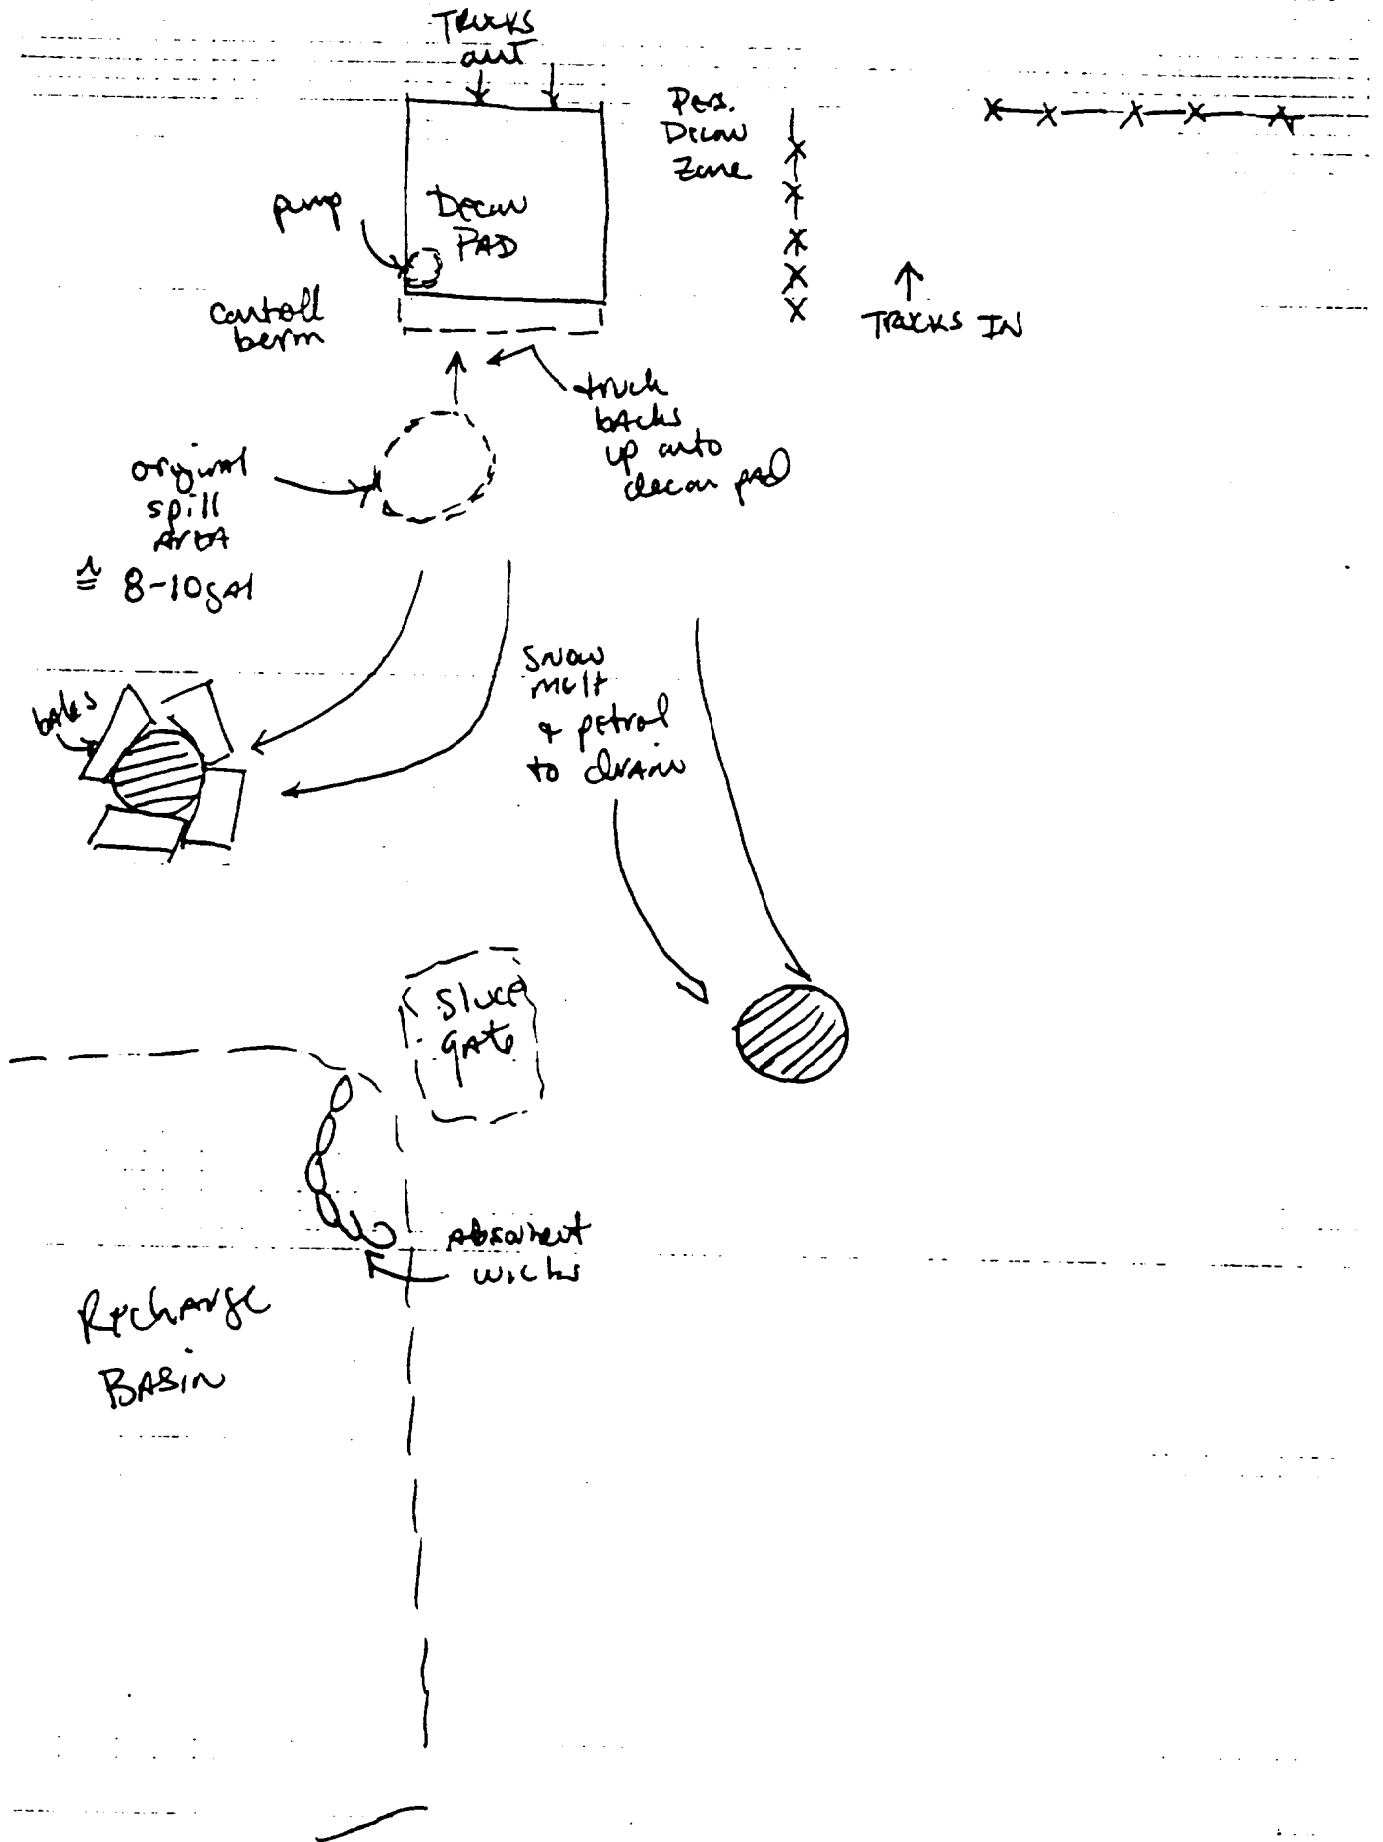 TRUCKS
out
Pers.
Decon
Zone
pump
Decon
PAD
controll
berm
TRUCKS IN
truck
backs
up onto
decon pad
original
spill
AREA
≅ 8-10gal
bales
Snow
melt
& petrol
to drain
Sluce
gate
Absorbent
wicks
Recharge
BASIN